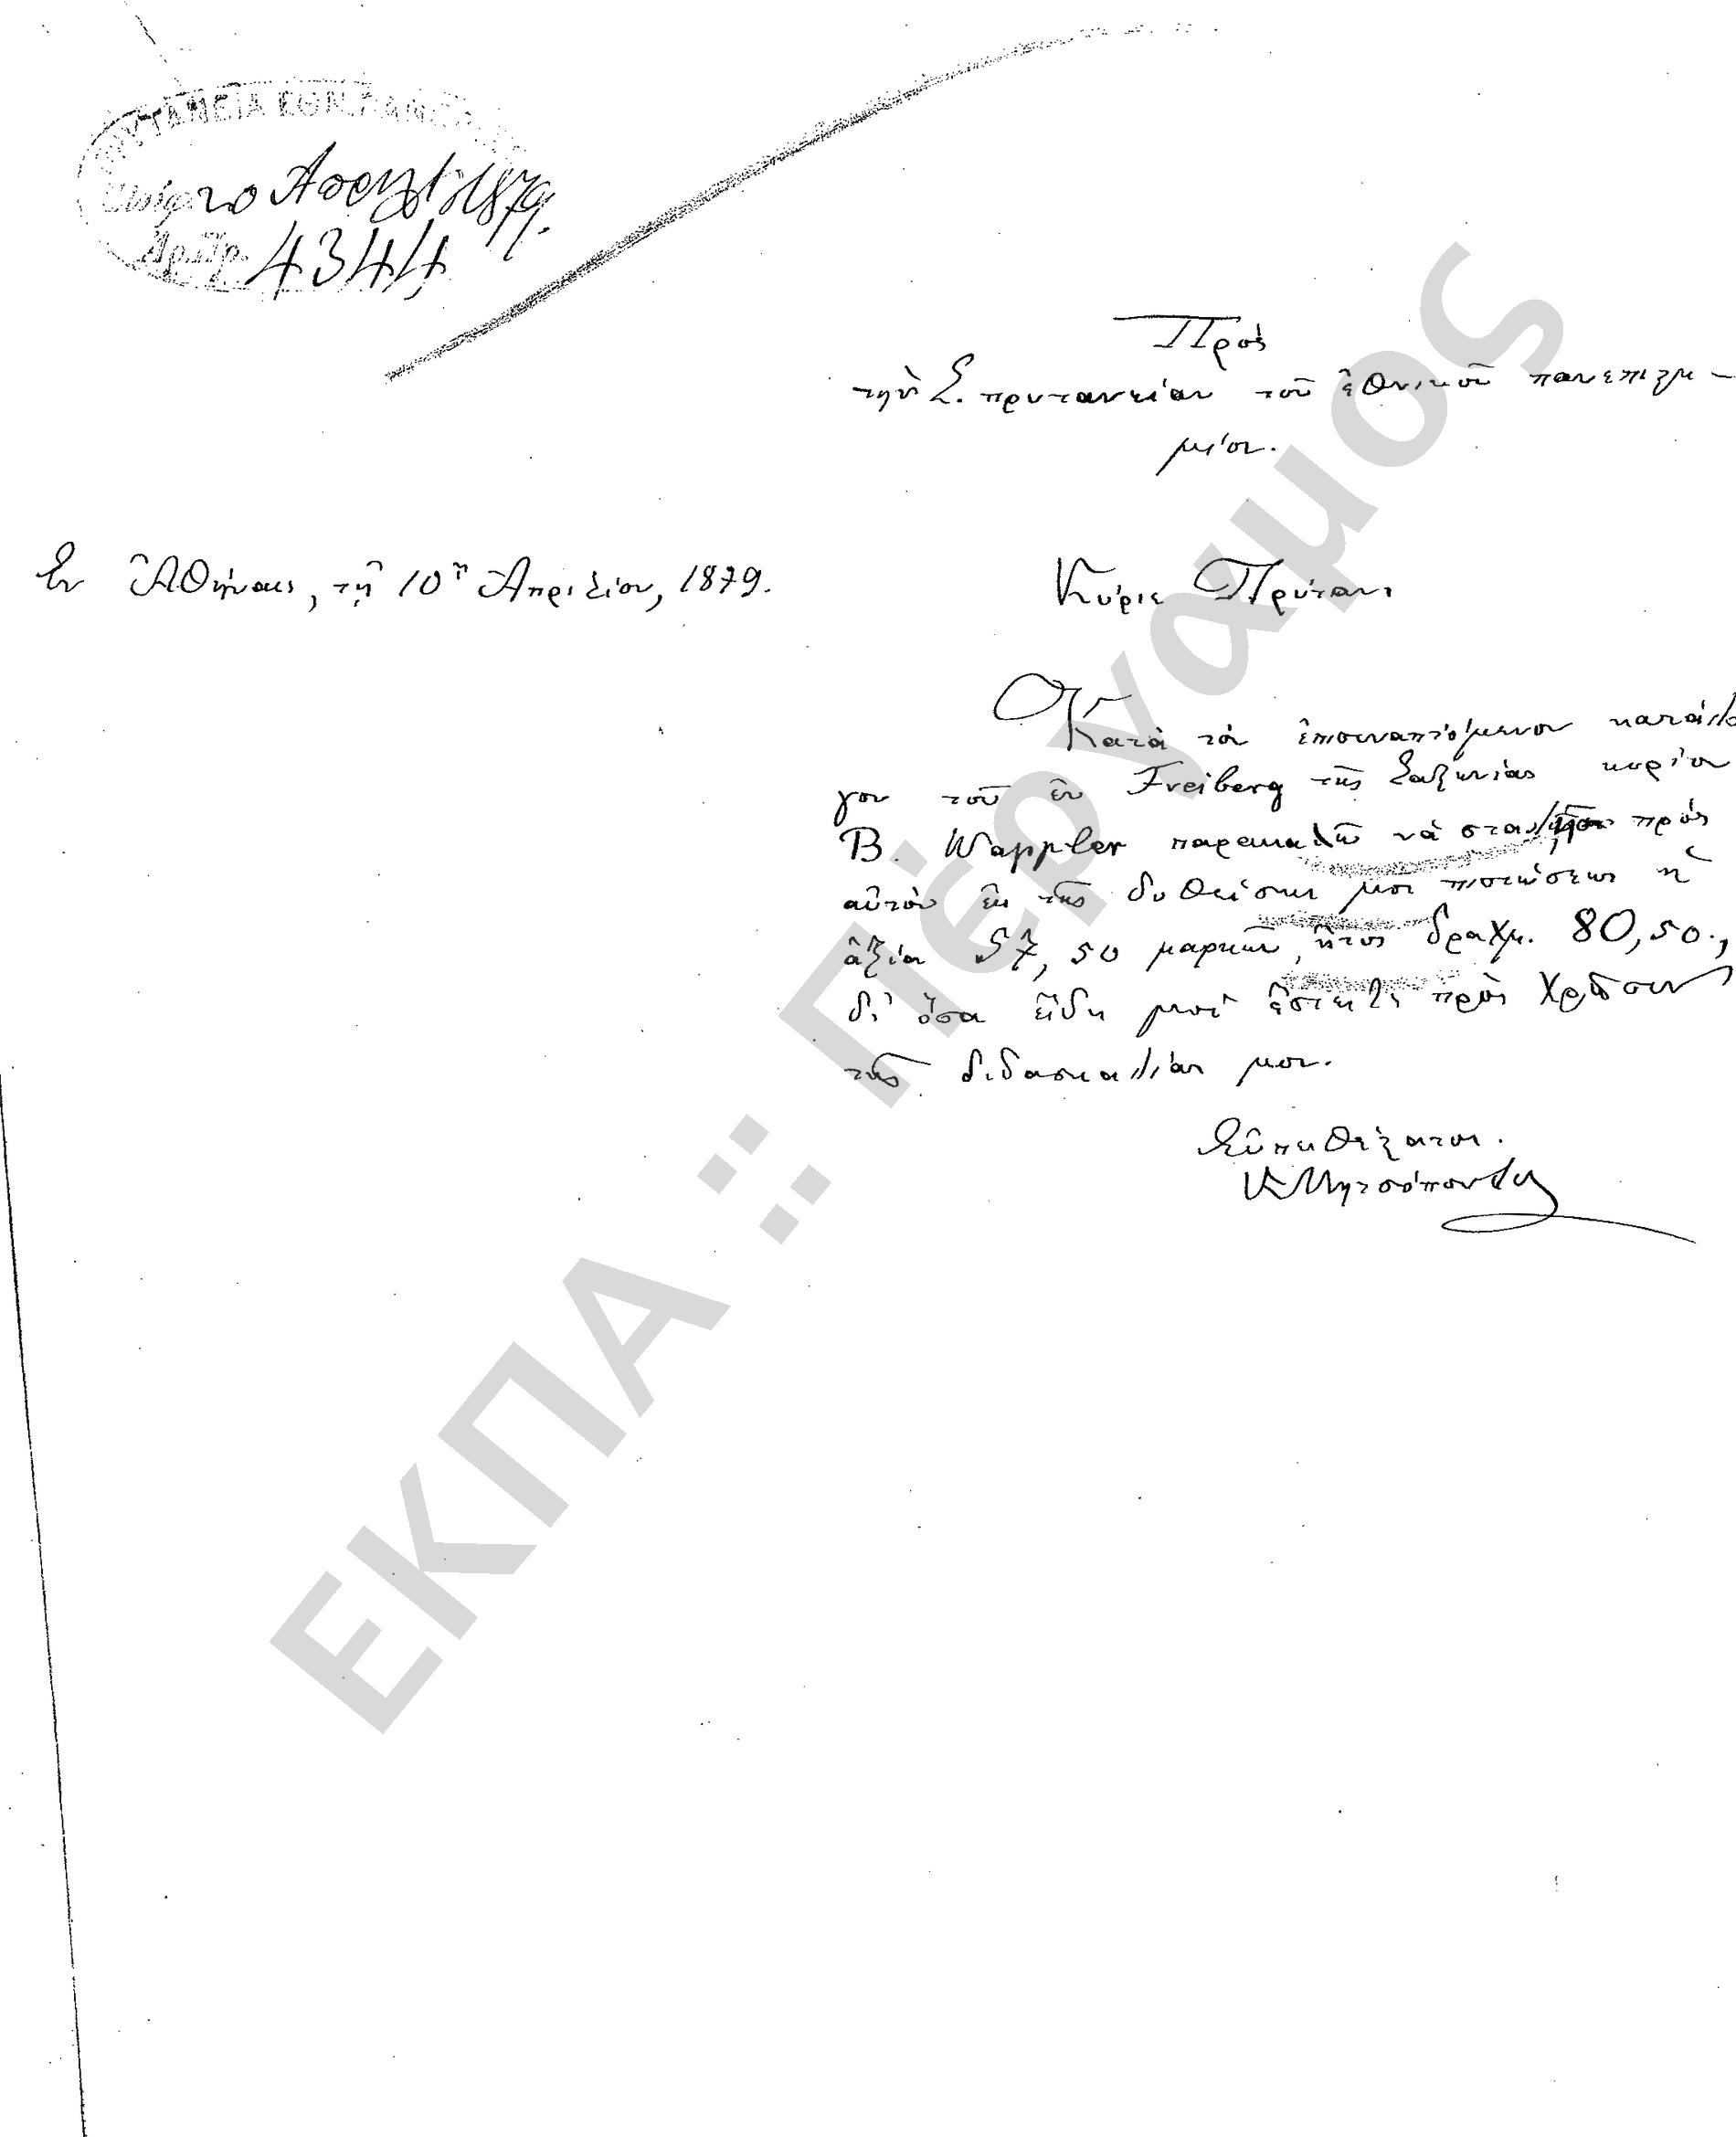 ΠΡΥΤΑΝΕΙΑ ΕΘΝ. ΠΑΝΕΠ
20 Απριλ 1879.
Ἀριθ. 4344
Πρὸς
τὴν Σ. πρυτανείαν τοῦ ἐθνικοῦ πανεπιστη-
μίου.
Ἐν Ἀθήναις, τῇ 10ῃ Ἀπριλίου, 1879.
Κύριε Πρύτανι
Κατὰ τὸν ἐπισυναπτόμενον κατάλο
γον τοῦ ἐν Freiberg τῆς Σαξωνίας κυρίου
B. Wappler παρακαλῶ νὰ σταλῇ πρὸς
αὐτὸν ἐκ τῆς δοθείσης μοι πιστώσεως ἡ
ἀξία 57,50 μαρκῶν, ἤτοι δραχμ. 80,50.,
δι' ὅσα εἴδη μοὶ ἔστειλε πρὸς χρῆσιν
τῆς διδασκαλίας μου.
Εὐπειθέστατος.
Κ Μητσόπουλος
ΕΚΠΑ :: Πέργαμος